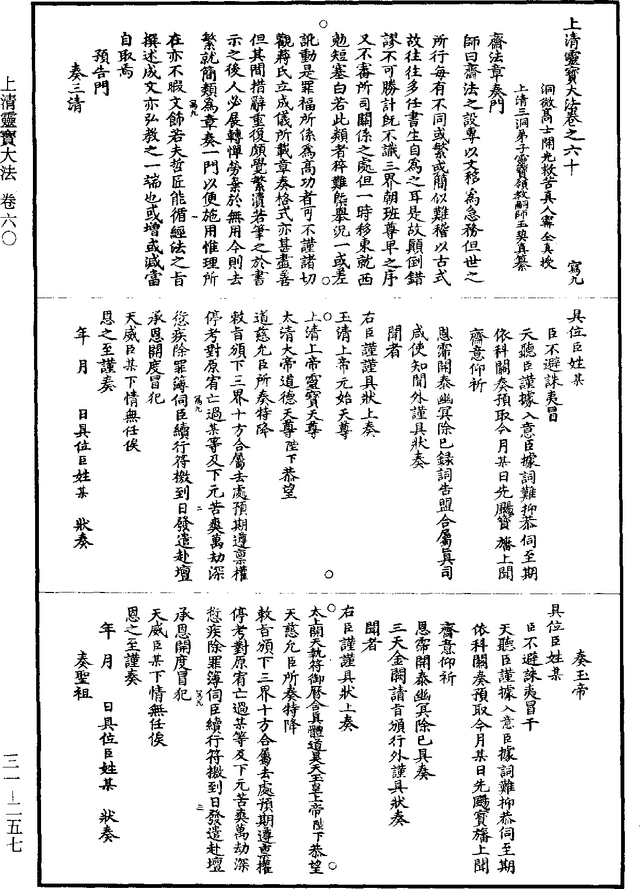 上清靈寶大法卷之六十
寫九
洞微高士開光救苦真人甯全真授
上清三洞弟子靈寶領教嗣師王契真纂
齋法章奏門
師曰齋法之設專以文移為急務但世之
所行每有不同或繁或簡似難稽以古式
故往往多任書生自為之耳是故顛倒錯
謬不可勝計既不識三界朝班尊卑之序
又不審所司關係之處但一時移東就西
勉短塞白若此類者稡難槩舉況一或差
訛動是罪福所係為高功者可不謹諸切
觀蔣氏立成儀所載章奏格式亦甚盡善
但其間措辭重復頗覺繁瀆若筆之於書
示之後人必展轉憚勞棄於無用今則去
繁就簡類為章奏一門以便施用惟理所
在亦不暇文飾若夫哲匠能循經法之旨
撰述成文亦弘教之一端也或增或減當
自取焉
預告門
奏三清
具位臣姓某
臣不避誅夷冒
天聽臣謹據入意臣據詞難抑恭伺至期
依科關奏預取今月某日先颺寶旛上聞
齋意仰祈
恩霈開泰幽冥除已錄詞告盟合屬真司
咸使知聞外謹具狀奏
聞者
右臣謹謹具狀上奏
玉清上帝元始天尊
上清上帝靈寶天尊
太清大帝道德天尊陛下恭望
道慈允臣所奏特降
敕旨頒下三界十方合屬去處預期遵稟權
停考對原宥亡過某等及下元苦爽萬劫深
愆疾除罪簿伺臣續行符檄到日發遣赴壇
承恩開度冒犯
天威臣某下情無任俟
恩之至謹奏
年 月 日具位臣姓某 狀奏
奏玉帝
具位臣姓某
臣不避誅夷冒干
天聽臣謹據入意臣據詞難抑恭伺至期
依科關奏預取今月某日先颺寶旛上聞
齋意仰祈
恩霈開泰幽冥除已具奏
三天金闕請旨頒行外謹具狀奏
聞者
右臣謹謹具狀上奏
太上開天執符御曆含真體道昊天玉皇上帝陛下恭望
天慈允臣所奏特降
敕旨頒下三界十方合屬去處預期遵稟權
停考對原宥亡過某等及下元苦爽萬劫深
愆疾除罪簿伺臣續行符檄到日發遣赴壇
承恩開度冒犯
天威臣某下情無任俟
恩之至謹奏
年 月 日具位臣姓某 狀奏
奏聖祖
上清靈寶大法 卷六〇
三一－二五七